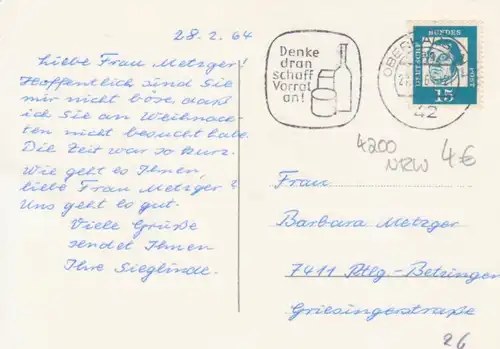 28. 2. 64
Liebe Frau Metzger!
Hoffentlich sind Sie
mir nicht böse, daß
ich Sie an Weihnach-
ten nicht besucht habe.
Die Zeit war so kurz.
Wie geht es Ihnen,
liebe Frau Metzger?
Uns geht es gut.
Viele Grüße
sendet Ihnen
Ihre Sieglinde.
Denke
dran
schaff
Vorrat
an!
42
DEUTSCHE
BUNDES
POST
15
4200
NRW
4€
Frau
Barbara Metzger
7411 Rtlg-Betzingen
Griesingerstraße
26